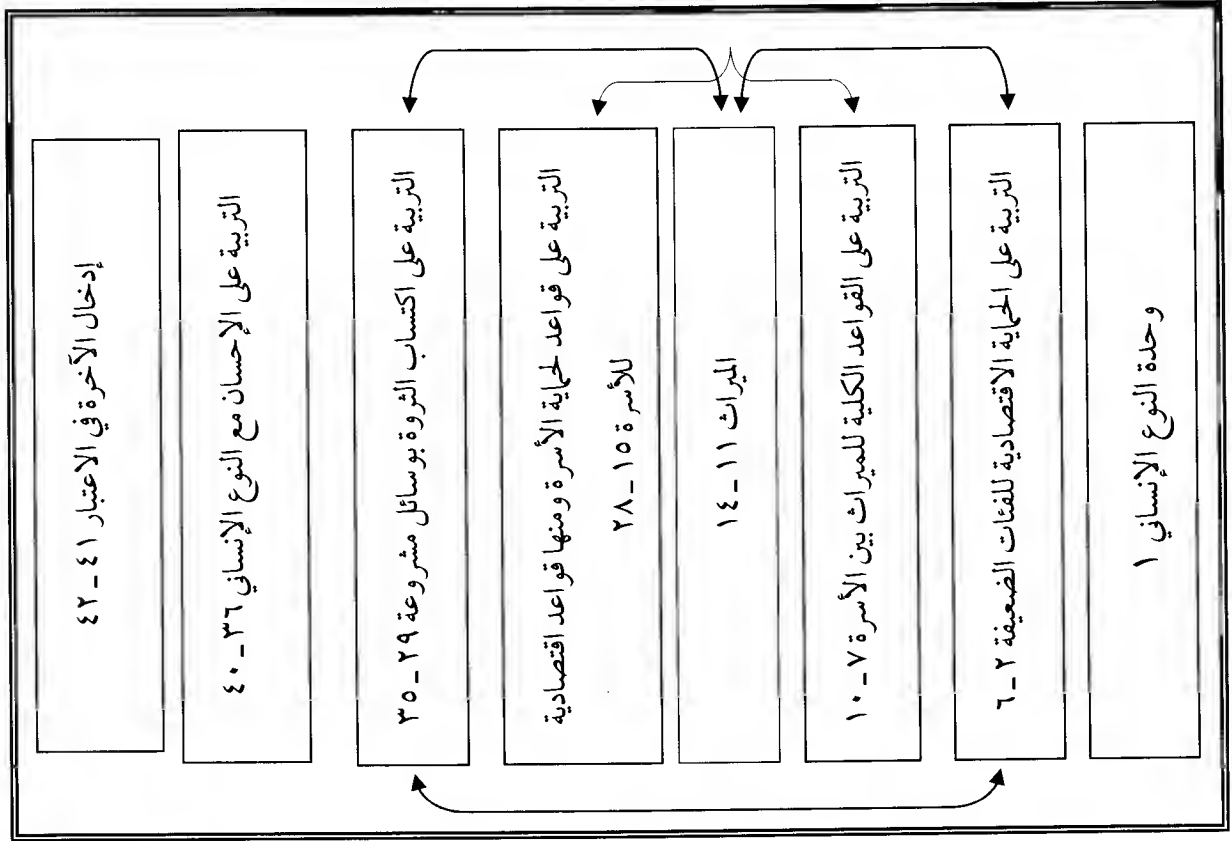 وحدة النوع الإنساني ١
التربية على الحماية الاقتصادية للفئات الضعيفة ٢ــ٦
التربية على القواعد الكلية للميراث بين الأسرة ٧ــ١٠
الميراث ١١ــ١٤
التربية على قواعد لحماية الأسرة ومنها قواعد اقتصادية
للأسرة ١٥ــ٢٨
التربية على اكتساب الثروة بوسائل مشروعة ٢٩ــ٣٥
التربية على الإحسان مع النوع الإنساني ٣٦ــ٤٠
إدخال الآخرة في الاعتبار ٤١ــ٤٢